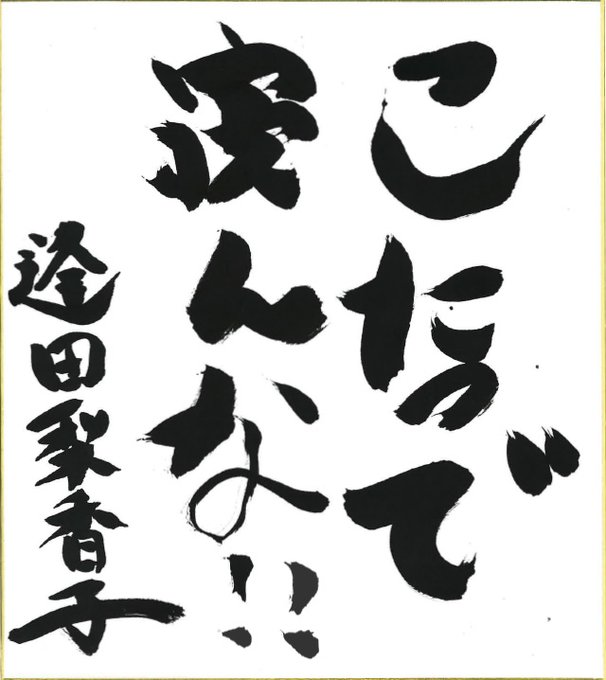 こたつで
寝んな!!
逢田梨香子